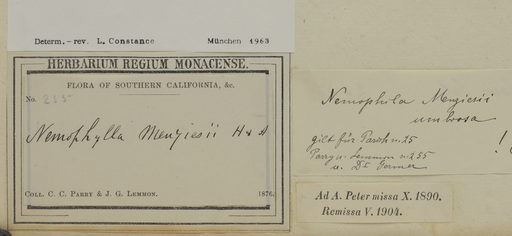 Determ. – rev. L. Constance München 1963
HERBARIUM REGIUM MONACENSE.
FLORA OF SOUTHERN CALIFORNIA, &c.
No. 255
Nemophylla Menziesii H & A
COLL. C. C. PARRY & J. G. LEMMON. 1876.
Nemophila Menziesii
umbrosa
gilt für Parish n. 25
Parry u. Lemmon n. 255
u. Dr
!
Ad A. Peter missa X. 1890.
Remissa V. 1904.